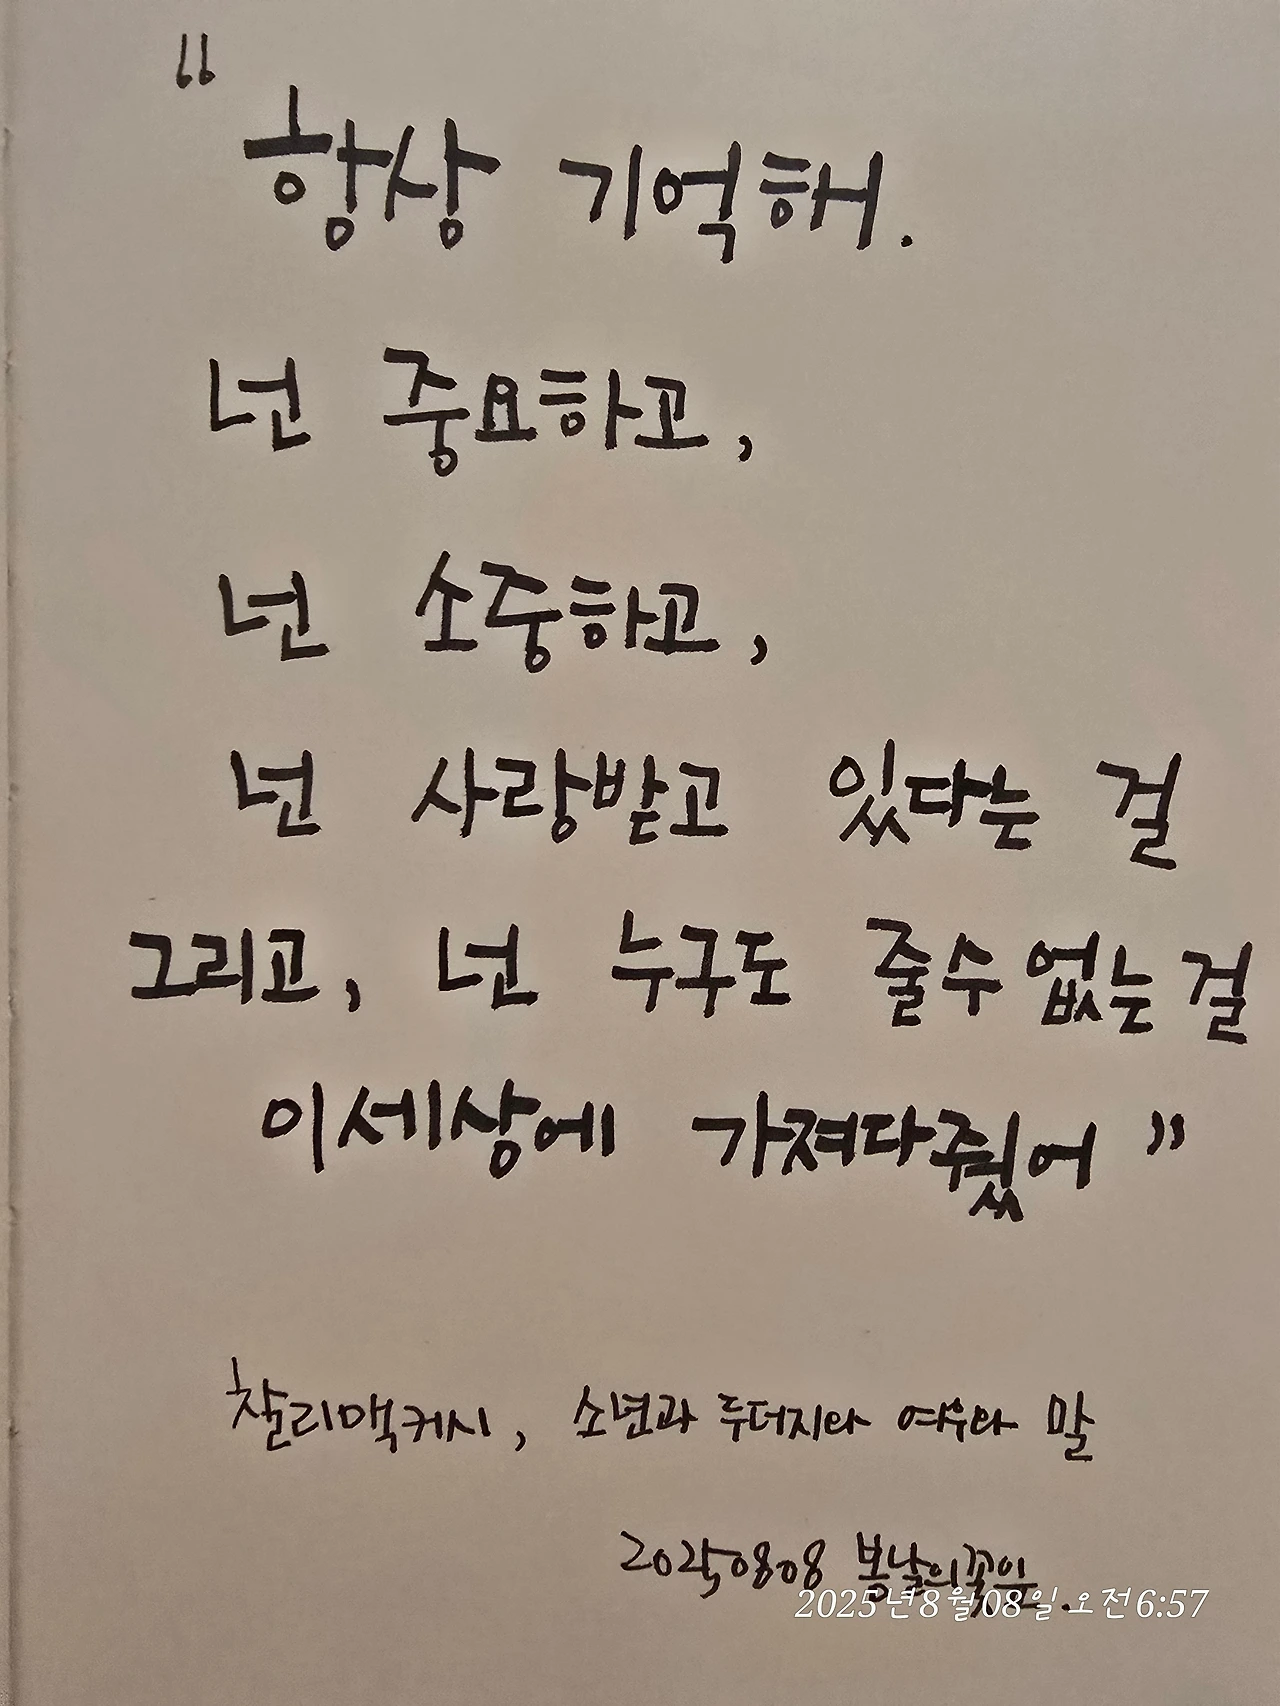 “
항상 기억해.
넌 중요하고,
넌 소중하고,
넌 사랑받고 있다는 걸
그리고, 넌 누구도 줄수 없는 걸
이세상에 가져다줬어 ”
찰리맥커시, 소년과 두더지와 여우와 말
20250808 봄날의
2025년 8월 08일 오전 6:57